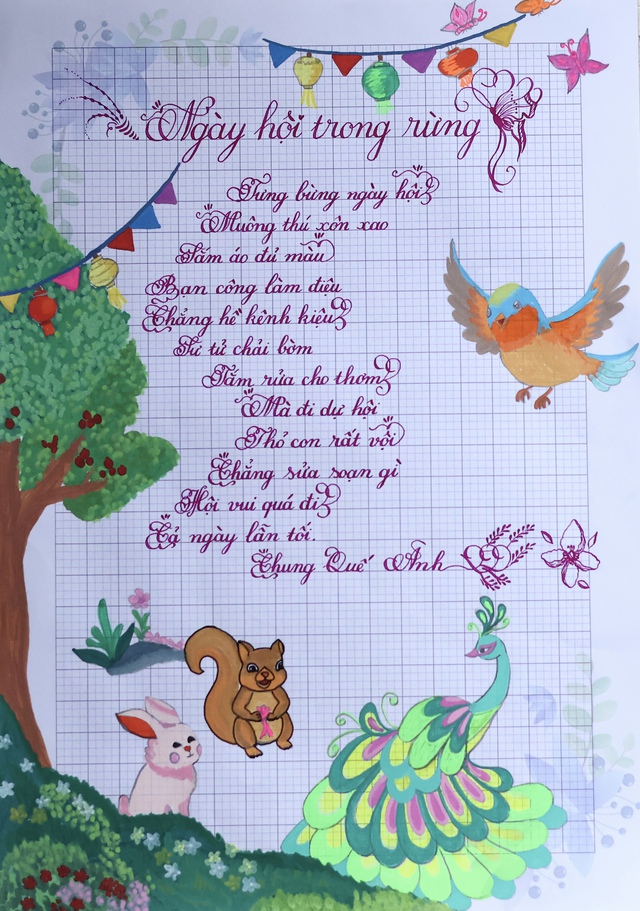 Ngày hội trong rừng
Tưng bừng ngày hội
Muông thú xôn xao
Sắm áo đủ màu
Bạn công làm điệu
Chẳng hề kênh kiệu
Sư tử chải bờm
Tắm rửa cho thơm
Mà đi dự hội
Thỏ con rất vội
Chẳng sửa soạn gì
Hội vui quá đi
Cả ngày lẫn tối.
Chung Quế Ành